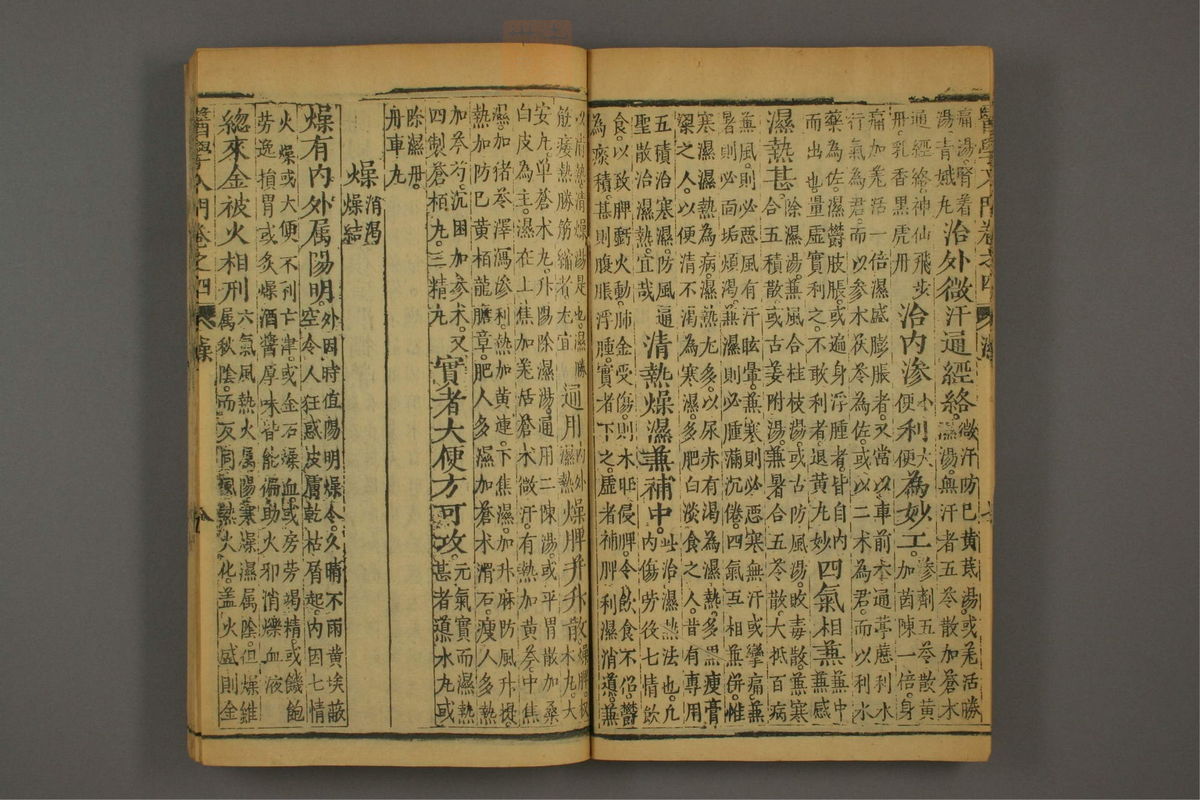 醫學入門卷之四 濕 七
痛湯。腎着
湯青娥丸
治外微汗通經絡。
微汗防己黃茋湯。或羌活勝
濕湯。無汗者五苓散加蒼朮
通經絡。神仙飛步
丹。乳香黑虎丹
治內滲小便利大便為妙工。
滲劑五苓散。黃
加茵陳一倍。身
痛加羌活一倍。濕盛膨脹者。又當以車前木通葶藶利水
行氣為君。而以參朮茯苓為佐。或以二朮為君。而以利水
藥為佐。濕鬱肢脹。或遍身浮腫者。皆自內
而出也。量虛實利之。不敢利者。退黃丸妙
四氣相兼
兼中
兼感
濕熱甚。
除濕湯。兼風合桂枝湯。或古防風湯。敗毒散。兼寒
合五積散。或古姜附湯。兼暑合五苓散。大抵百病
兼風。則必惡風有汗眩暈。兼寒。則必惡寒無汗或攣痛。兼
暑則必面垢煩渴。兼濕則必腫滿沉倦。四氣互相兼併。惟
寒濕濕熱為病。濕熱尤多。以尿赤有渴為濕熱。多黑瘦膏
粱之人。以便清不渴為寒濕。多肥白淡食之人。昔有專用
五積治寒濕。防風通
聖散治濕熱。宜哉
清熱燥濕兼補中。
此治濕熱法也。凡
內傷勞後七情飲
食。以致脾虧火動。肺金受傷。則木旺侵脾。令飲食不化。鬱
為痰積。甚則腹脹浮腫。實者下之。虛者補脾利濕消導兼
以前熱清燥湯是也。濕勝
筋痿熱勝筋縮者尤宜
通用
內外
濕熱
燥脾并升散
燥脾。枳
朮丸。大
安丸。單蒼朮丸。升陽除濕湯。通用二陳湯。或平胃散加桑
白皮為主。濕在上焦加羌活蒼朮微汗。有熱加黃芩。中焦
濕。加猪苓澤瀉滲利。熱加黃連。下焦濕。加升麻防風升提。
熱加防己黃栢龍膽章。肥人多濕加蒼朮滑石。瘦人多熱
加芩芍。沉困加參朮。又
四製蒼栢丸。三精丸
實者大便方可攻。
元氣實而濕熱
甚者導水丸。或
除濕丹。
舟車丸
燥
消渴
燥結
燥有內外属陽明。
外因時值陽明燥令。久晴不雨。黃埃蔽
空。令人狂惑。皮膚乾枯屑起。內因七情
火燥。或大便不利亡津。或金石燥血。或房劳竭精。或饑飽
劳逸損胃。或炙煿酒醬厚味。皆能偏助火邪。消爍血液
總來金被火相刑
六氣風熱火属陽。寒燥濕属陰。但燥雖
属秋陰。而反同風熱火化。盖火盛則金
醫學入門卷之四 燥 八